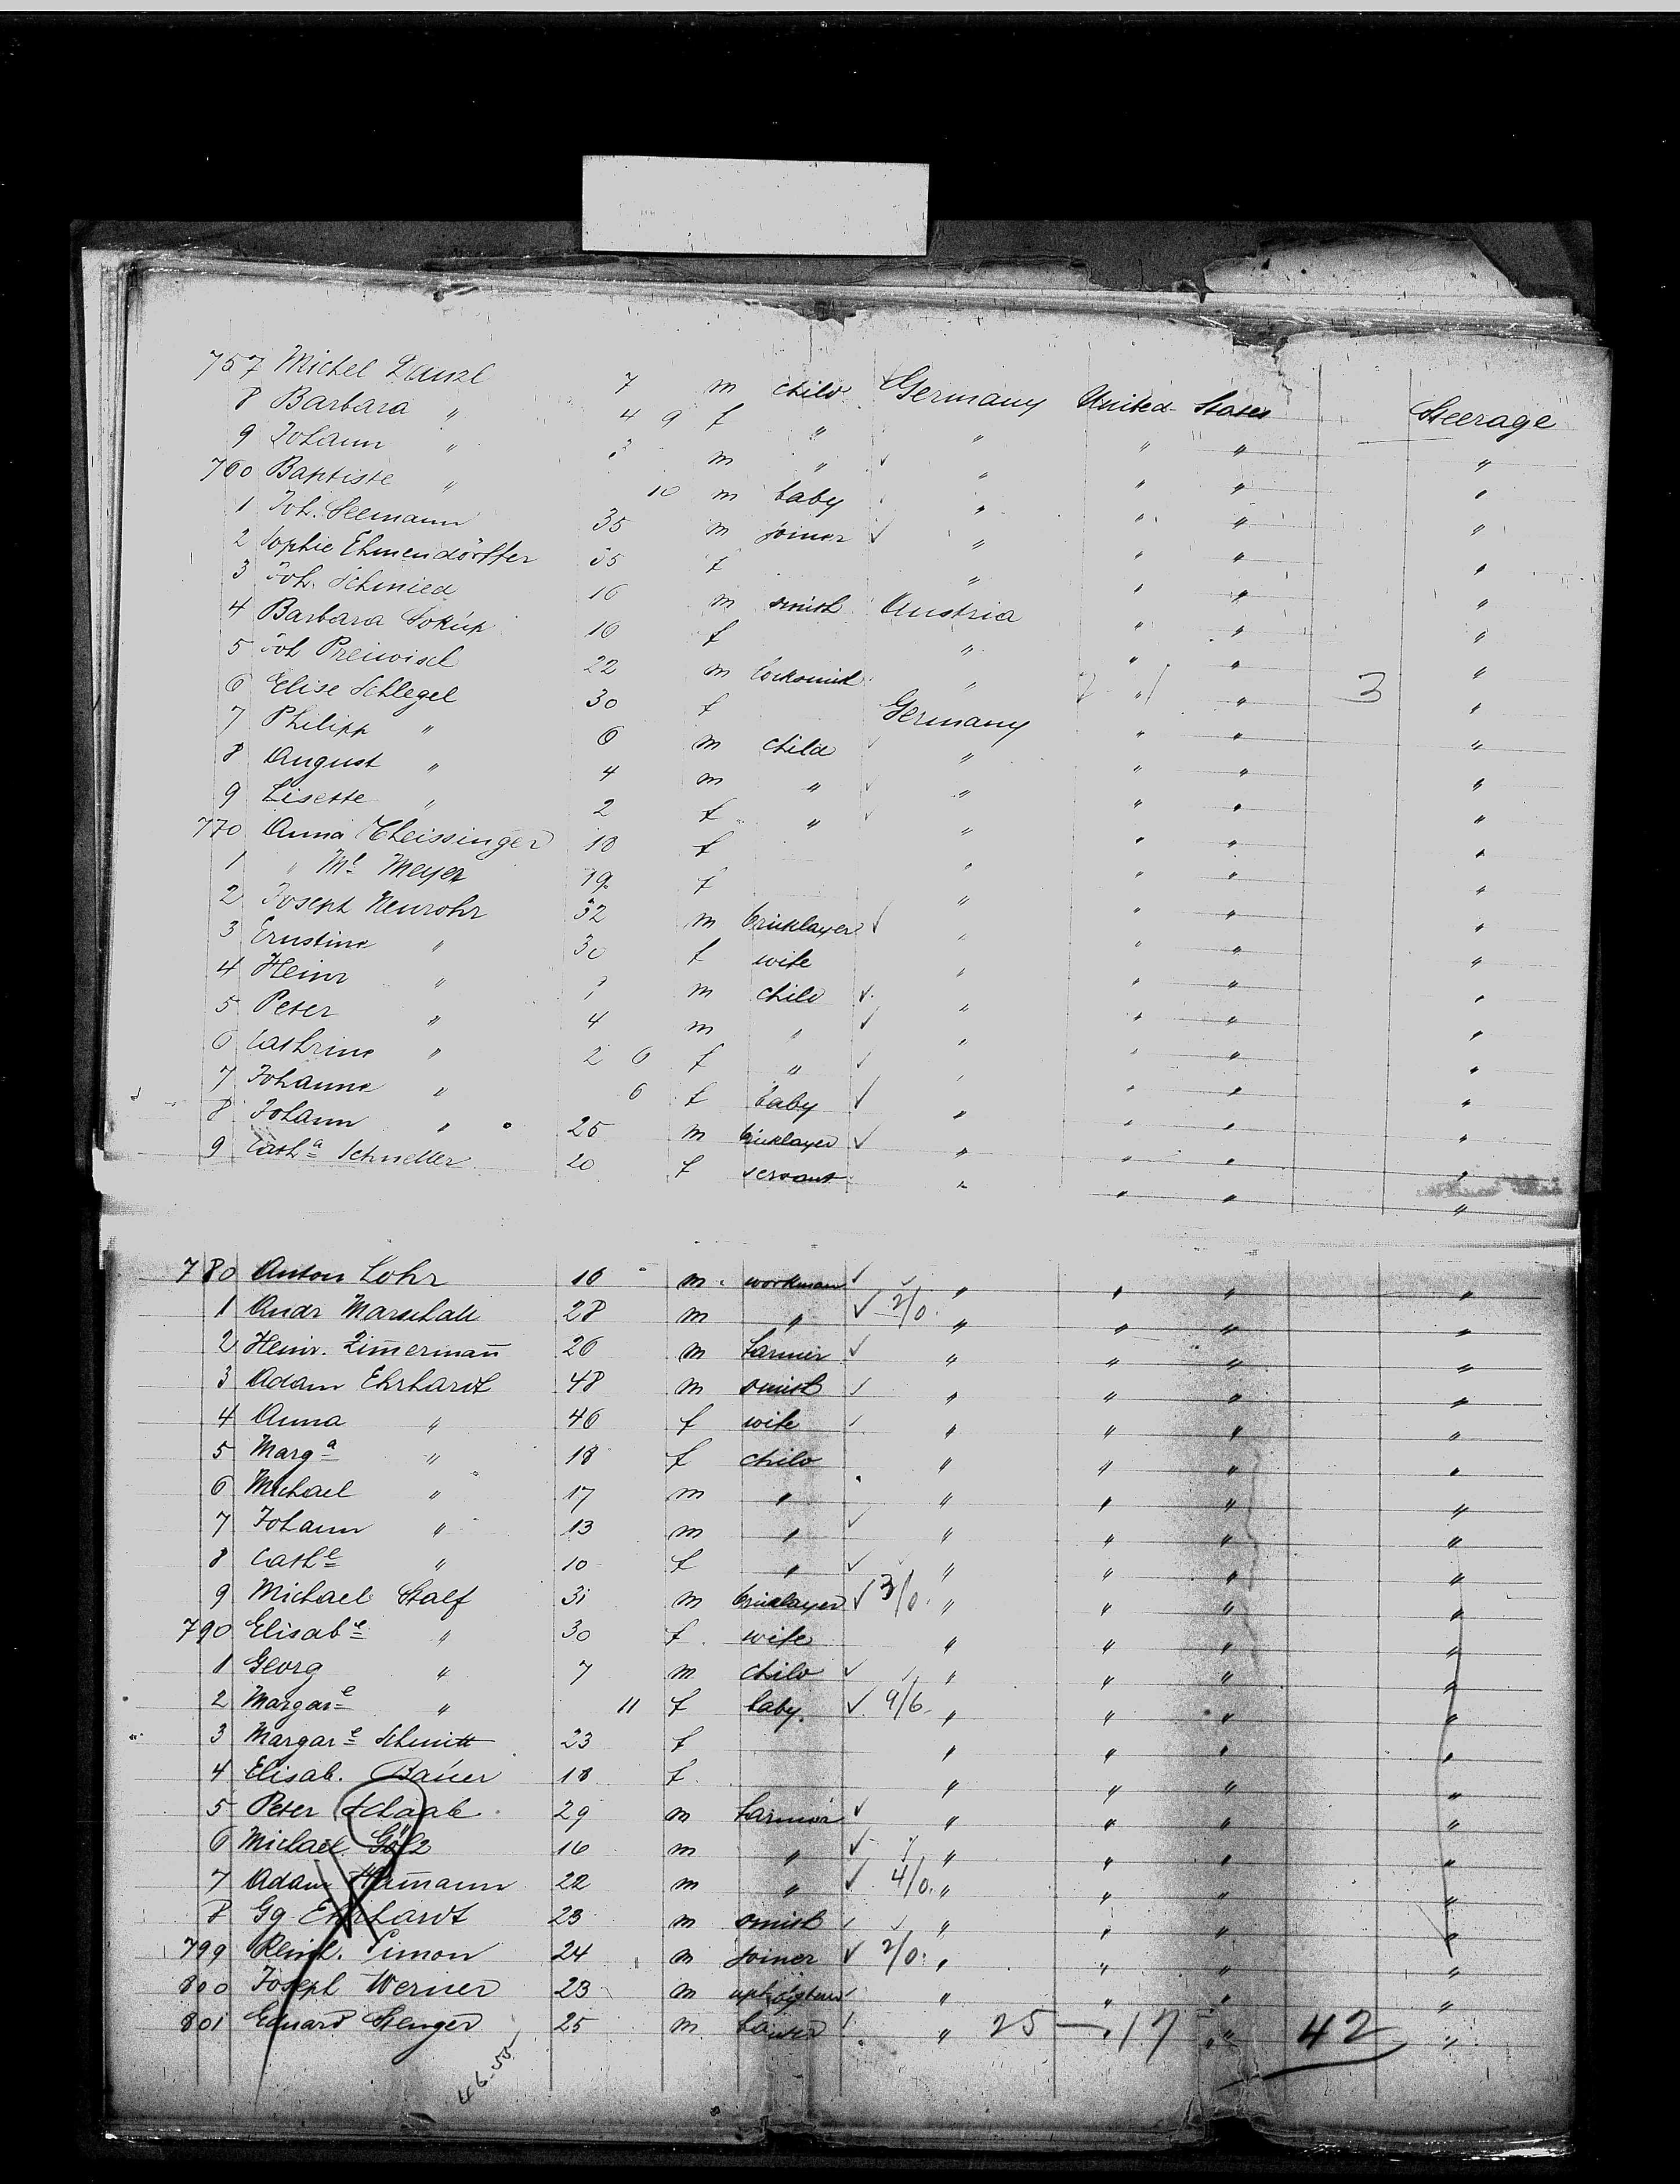 757 Michel Danzl 7 m child Germany United States Steerage
8 Barbara " 4 9 f " " " " "
9 Johann " m " " " " "
760 Baptiste " 10 m baby " " " "
1 Joh. Seemann 35 m joiner " " " "
2 Sophie Ehmendörffer 35 f " " " "
3 Joh. Schmied 16 m smith Austria " " "
4 Barbara Sokup 16 f " " " "
5 Joh Preiwisch 22 m locksmith " " " 3 "
6 Elise Schlegel 30 f Germany " " "
7 Philipp " 6 m child " " " "
8 August " 4 m " " " " "
9 Lisette " 2 f " " " " "
770 Anna Theissinger 18 f " " " "
1 " Me Meyer 19 f " " " "
2 Joseph Neurohr 32 m bricklayer " " " "
3 Ernstine " 30 f wife " " " "
4 Heinr " m child " " " "
5 Peter " 4 m " " " " "
6 Cathrine " 2 6 f " " " " "
7 Johanne " 6 f baby " " " "
8 Johann " 25 m bricklayer " " " "
9 Catha Schneller 20 f servant " " " "
780 Anton Lohr 16 m workman " " " "
1 Andr Marschall 28 m " 2/0 " " " "
2 Heinr. Zimermañ 26 m farmer " " " "
3 Adam Ehrhardt 48 m smith " " " "
4 Anna " 46 f wife " " " "
5 Marga " 18 f child " " " "
6 Michael " 17 m " " " " "
7 Johann " 13 m " " " " "
8 Cathe " 10 f " " " " "
9 Michael Stalf 31 m bricklayer 3/0. " " " "
790 Elisabe " 30 f wife " " " "
1 Georg " 7 m child " " " "
2 Margare " 11 f baby 9/6 " " " "
3 Margare Schmitt 23 f " " " "
4 Elisab. Bauer 18 f " " " "
5 Peter Schaab 29 m farmer " " " "
6 Michael Götz 16 m " " " " "
7 Adam Hamann 22 m " 4/0 " " " "
8 Gg Ehrhardt 23 m smith " " " "
799 Reinh. Simon 24 m joiner 2/0 " " " "
800 Joseph Werner 23 m upholsterer " " " "
801 Eduard Stenger 25 m " 25 — 17 " 42 "